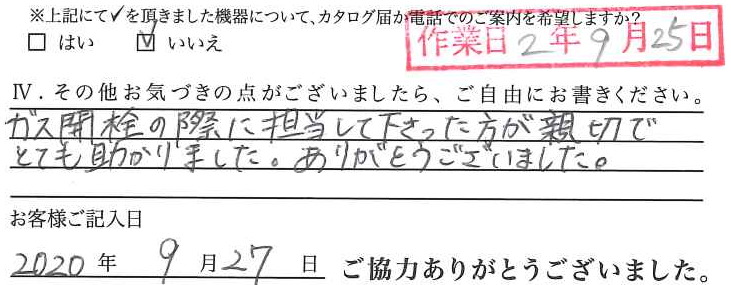 ※上記にて✓を頂きました機器について、カタログ届か電話でのご案内を希望しますか?
□ はい ☑ いいえ
作業日 2年9月25日
Ⅳ．その他お気づきの点がございましたら、ご自由にお書きください。
ガス開栓の際に担当して下さった方が親切で
とても助かりました。ありがとうございました。
お客様ご記入日
2020年 9月27日 ご協力ありがとうございました。